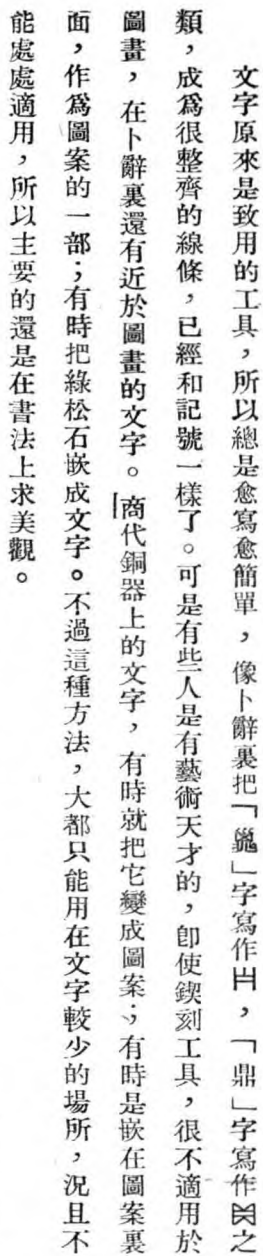 文字原來是致用的工具，所以總是愈寫愈簡單，像卜辭裏把「𪚦」字寫作，「鼎」字寫作之
類，成爲很整齊的線條，已經和記號一樣了。可是有些人是有藝術天才的，卽使鍥刻工具，很不適用於
圖畫，在卜辭裏還有近於圖畫的文字。商代銅器上的文字，有時就把它變成圖案；有時是嵌在圖案裏
面，作爲圖案的一部；有時把綠松石嵌成文字。不過這種方法，大都只能用在文字較少的場所，況且不
能處處適用，所以主要的還是在書法上求美觀。